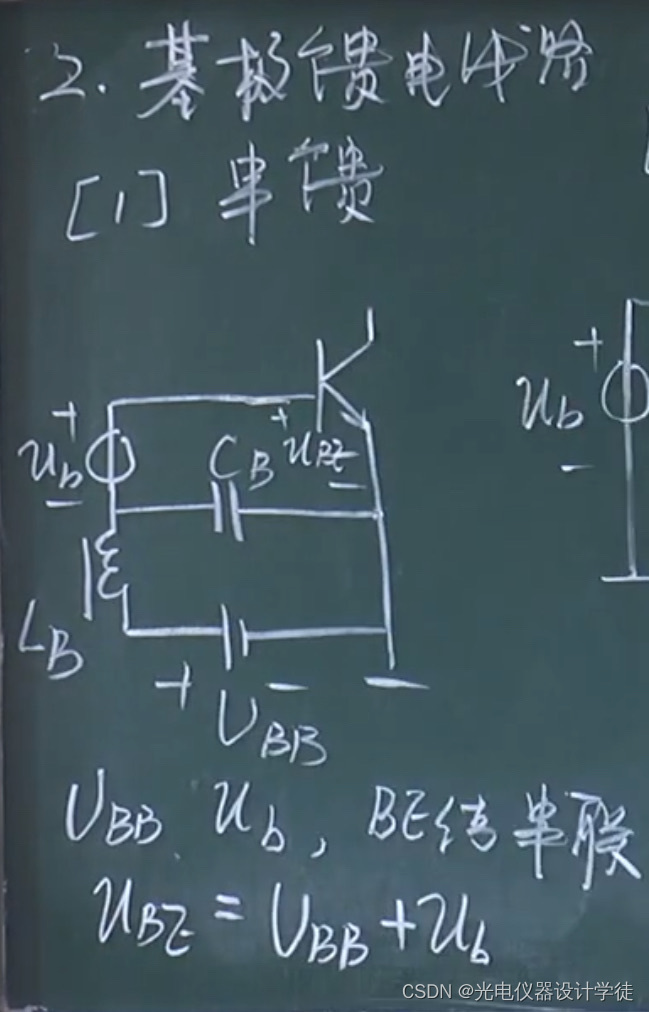 2. 基极馈电线路
[1] 串馈
+
+
u_b
C_B
+
u_BE
u_b
-
-
-
L_B
+
-
U_BB
U_BB、u_b, BE结串联
u_BE = U_BB + u_b
CSDN @光电仪器设计学徒